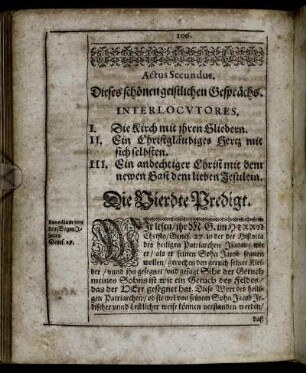 106.
Actus Secundus.
Dieses schönen geistlichen Gesprächs.
INTERLOCVTORES.
I. Die Kirch mit jhren Gliedern.
II. Ein Christgläubiges Hertz mit
sich selbsten.
III. Ein andechtiger Christ mit dem
newen Gast dem lieben Jesulein.
Die Vierdte Predigt.
Genes. 27.
WIr lesen / jhr
Christo / Genes. 27. in der der Historia
des heiligen Patriarchen Isaacs / wie
er / als er seinen Sohn Jacob segnen
wollen / gerochen den geruch seiner Klei-
der / vnnd jhn gesegnet vnd gesagt Sihe der Geruch
meines Sohns ist wie ein Geruch des Feldes /
das der HErr gesegnet hat. Diese Wort des heili-
gen Patriarchen / ob sie wol von seinem Sohn Jacob
vnnd weise können verstanden werden /
daß